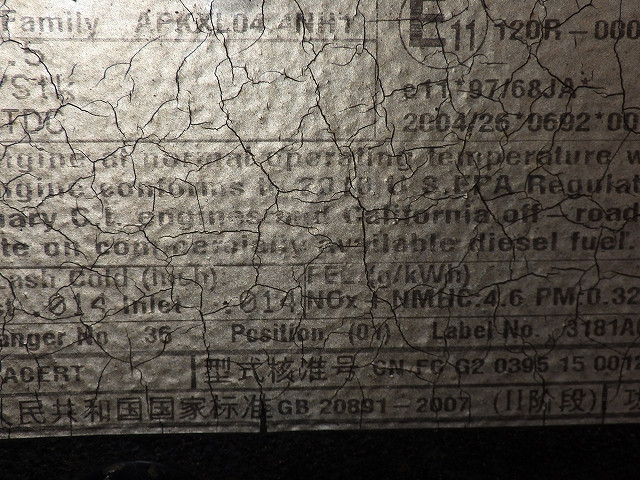 Family APKXL04.4NH1 E11 120R-000
TDC 2004/26*0692*00
e11*97/68JA*
engine at normal operating temperature
engine conforms to 2010 U.S.EPA Regulat
C.I. engines and California off-road
on commercially available diesel fuel.
Lash Cold (Inch) FEL (g/kWh)
.014 Inlet .014 NOx + NMHC:4.6 PM:0.32
No 36 Position (01) Label No. 3181A
ACERT 型式核准号 CN FC G2 0395 15 001
人民共和国国家标准 GB 20891-2007 (II阶段)